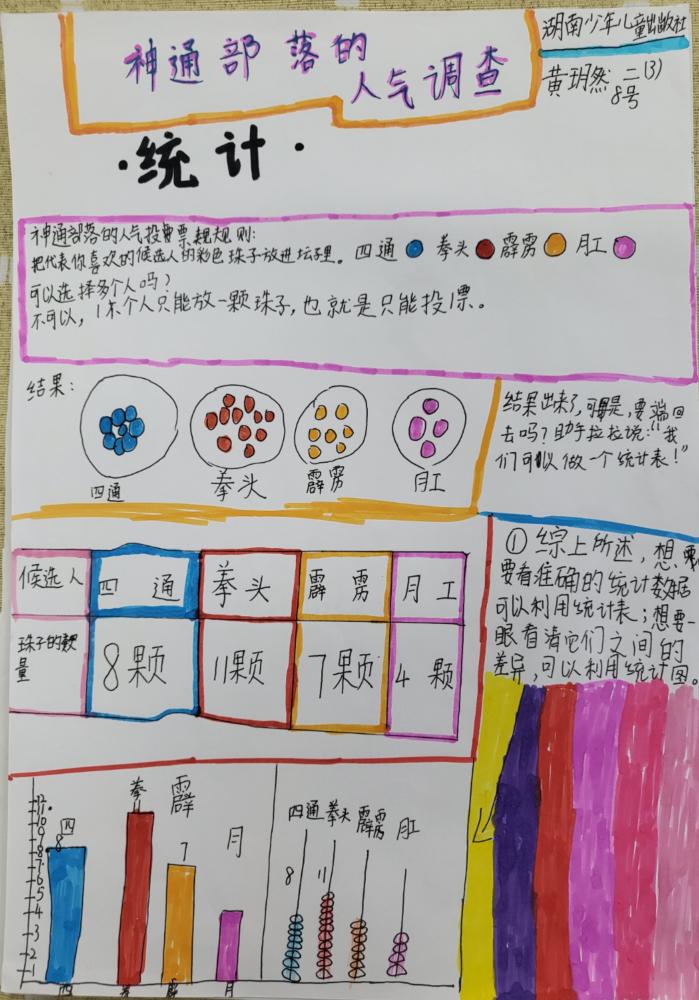 神通部落的
人气调查
湖南少年儿童出版社
黄玥然 二(3)
8号
·统计·
神通部落的人气投票规则:
把代表你喜欢的候选人的彩色珠子放进坛子里。四通 拳头 霹雳 月工
可以选择多个人吗?
不可以,1个人只能放一颗珠子,也就是只能投1票。
结果:
四通 拳头 霹雳 月工
结果出来了,可是,要端回
去吗?助手拉拉说:“我
们可以做一个统计表!”
候选人 四通 拳头 霹雳 月工
珠子的数
量
8颗 11颗 7颗 4颗
① 综上所述,想要
要看准确的统计数据
可以利用统计表;想要一
眼看清它们之间的
差异,可以利用统计图。
12
11
10
9
8
7
6
5
4
3
2
1
四 拳 霹 月
8 11 7
四 拳 霹 月
四通 拳头 霹雳 月工
8 11